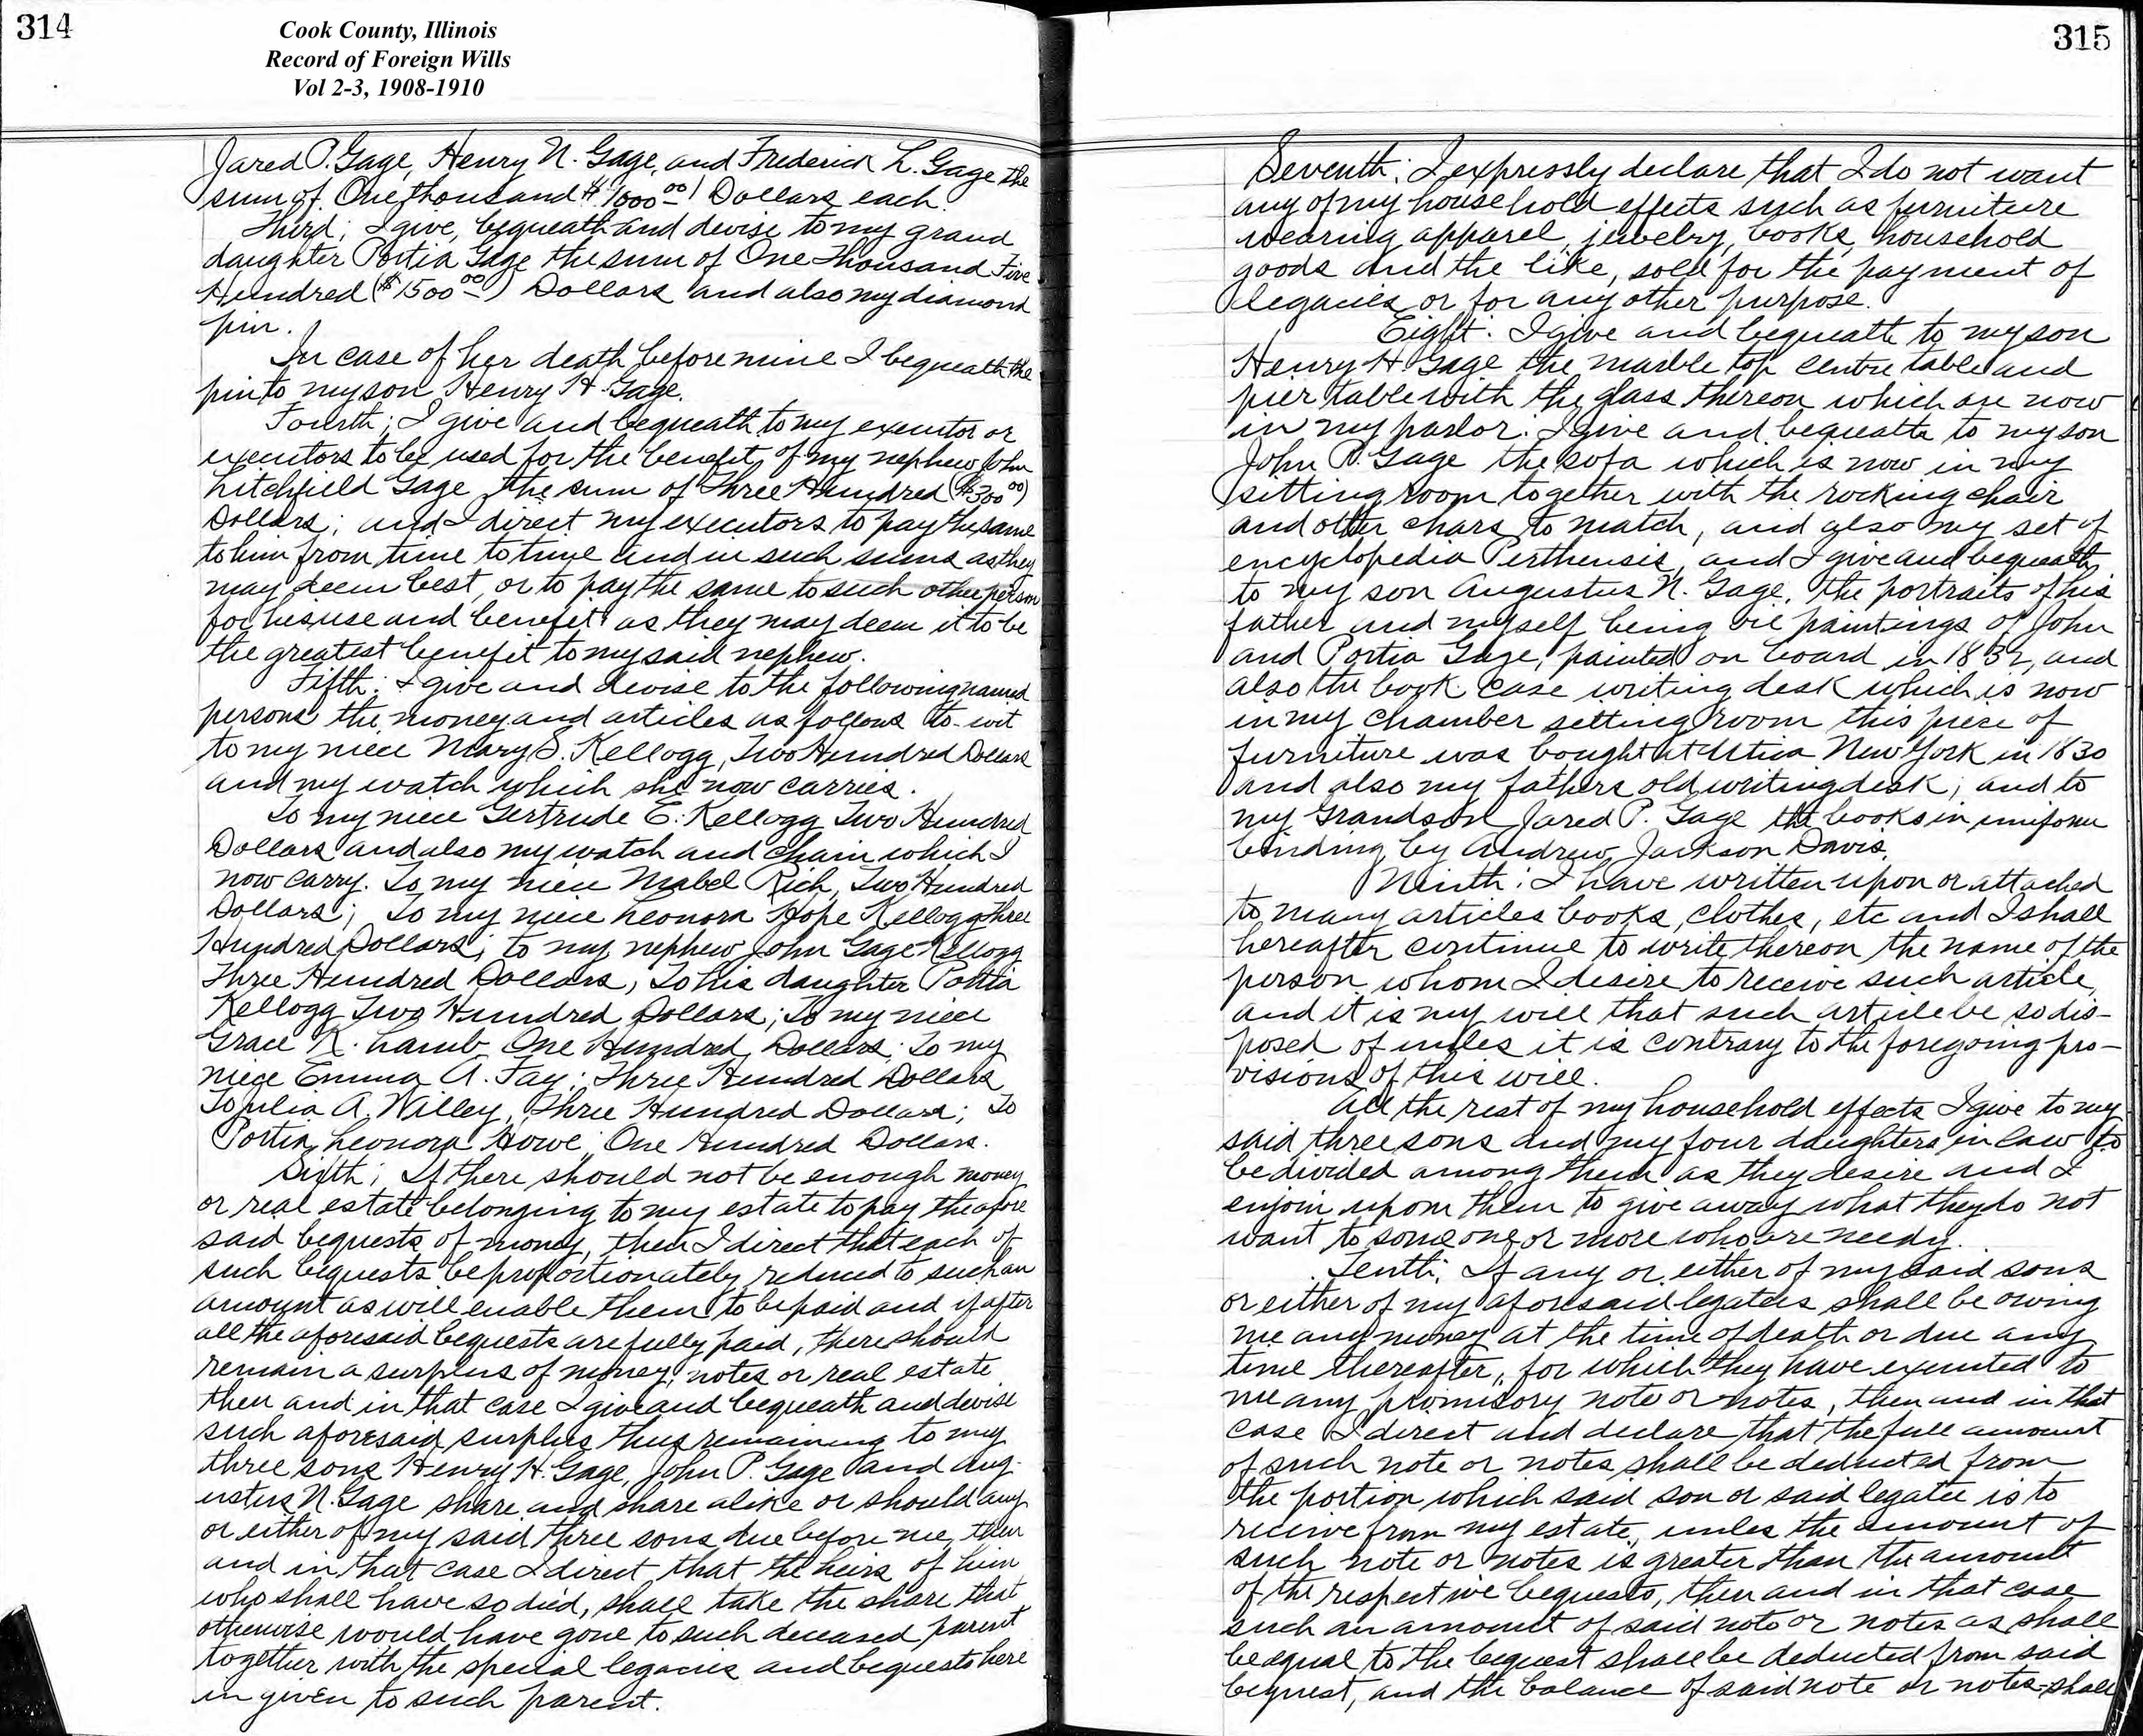 314
Cook County, Illinois
Record of Foreign Wills
Vol 2-3, 1908-1910
Jared P. Gage, Henry N. Gage, and Frederick L. Gage the
sum of. One thousand $ 1000 00 ) Dollars each.
Third; I give, bequeath and devise to my grand
daughter Portia Gage the sum of One Thousand Five
Hundred ($ 1500 00 ) Dollars and also my diamond
pin.
In case of her death before mine I bequeath the
pin to my son Henry H. Gage.
Fourth; I give and bequeath to my executor or
executors to be used for the benefit of my nephew John
Litchfield Gage the sum of Three Hundred ($300 00)
Dollars; and I direct my executors to pay the same
to him from time to time and in such sums as they
may deem best, or to pay the same to such other person
for his use and benefit as they may deem it to be
the greatest benefit to my said nephew.
Fifth; I give and devise to the following named
persons the money and articles as follows to-wit
to my niece Mary S. Kellogg, Two Hundred Dollars
and my watch which she now carries.
To my niece Gertrude E. Kellogg Two Hundred
Dollars and also my watch and chain which I
now carry. To my niece Mabel Rich, Two Hundred
Dollars; To my niece Leonora Hope Kellogg Three
Hundred Dollars; to my nephew John Gage Kellogg
Three Hundred Dollars; To his daughter Portia
Kellogg Two Hundred Dollars; To my niece
Grace K. Lamb One Hundred Dollars; To my
niece Emma A. Fay; Three Hundred Dollars
To Julia A. Willey, Three Hundred Dollars; To
Portia Leonora Howe, One Hundred Dollars.
Sixth; If there should not be enough money
or real estate belonging to my estate to pay the afore
said bequests of money, then I direct that each of
such bequests be proportionately reduced to such an
amount as will enable them to be paid and if after
all the aforesaid bequests are fully paid, there should
remain a surplus of money, notes or real estate
then and in that case I give and bequeath and devise
such aforesaid surplus thus remaining to my
three sons Henry H. Gage, John P. Gage and Aug-
ustus N. Gage share and share alike or should any
or either of my said three sons die before me, then
and in that case I direct that the heirs of him
who shall have so died, shall take the share that
otherwise would have gone to such deceased parent
together with the special legacies and bequests here
in given to such parent.
315
Seventh; I expressly declare that I do not want
any of my household effects such as furniture
wearing apparel, jewelry, books, household
goods and the like, sold for the payment of
legacies or for any other purpose.
Eight. I give and bequeath to my son
Henry H Gage the marble top centre table and
pier table with the glass thereon which are now
in my parlor. I give and bequeath to my son
John P. Gage the sofa which is now in my
sitting room together with the rocking chair
and other chars to match, and also my set of
encyclopedia Perthensis, and I give and bequeath
to my son Augustus N. Gage, the portraits of his
father and myself being oil paintings of John
and Portia Gage, painted on board in 1832, and
also the book case writing desk which is now
in my chamber setting room this piece of
furniture was bought at Utica New York in 1830
and also my fathers old writing desk; and to
my Grandson Jared P. Gage the books in uniform
binding by Andrew Jackson Davis.
Ninth; I have written upon or attached
to many articles books, clothes, etc and I shall
hereafter continue to write thereon the name of the
person whom I desire to receive such article,
and it is my will that such article be so dis-
posed of unless it is contrary to the foregoing pro-
visions of this will.
All the rest of my household effects I give to my
said three sons and my four daughters in law to
be divided among them as they desire and I
enjoin upon them to give away what they do not
want to some one or more who are needy.
Tenth; If any or either of my said sons
or either of my aforesaid legatees shall be owing
me any money at the time of death or due any
time thereafter, for which they have executed to
me any promisory note or notes, then and in that
case I direct and declare that the full amount
of such note or notes shall be deducted from
the portion which said son or said legatee is to
receive from my estate, unles the amount of
such note or notes is greater than the amount
of the respective bequests, then and in that case
such an amount of said note or notes as shall
be equal to the bequest shall be deducted from said
bequest, and the balance of said note or notes shall